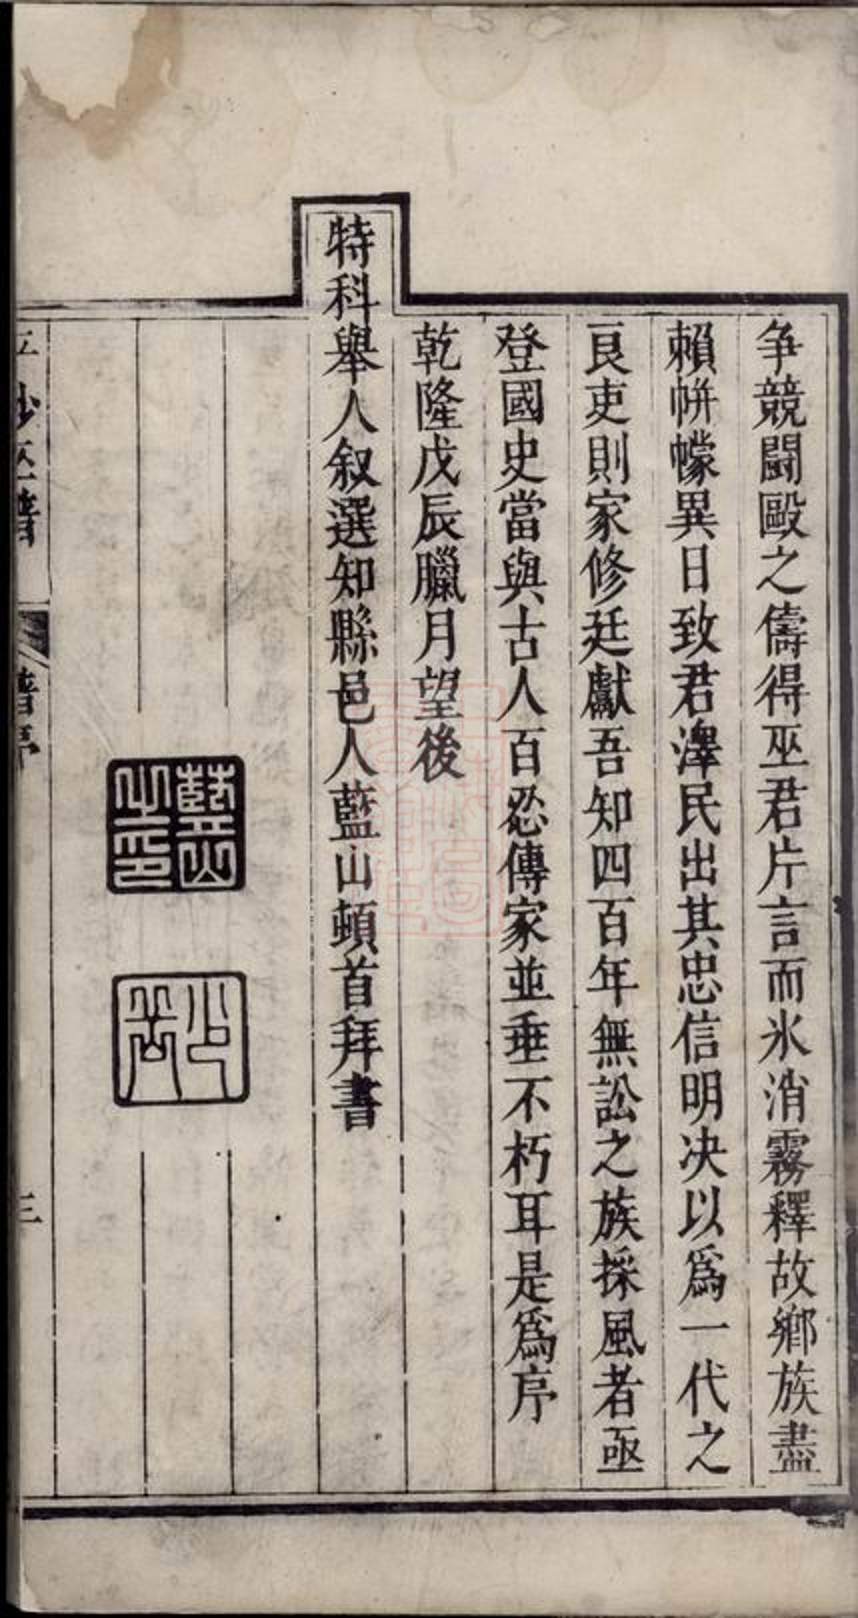 争競鬭毆之儔得巫君片言而氷消霧釋故鄉族盡
賴帡幪異日致君澤民出其忠信明決以爲一代之
良吏則家修廷獻吾知四百年無訟之族採風者亟
登國史當與古人百忍傳家並垂不朽耳是爲序
乾隆戊辰臘月望後
特科舉人叙選知縣邑人藍山頓首拜書
藍山之印
譜序
三